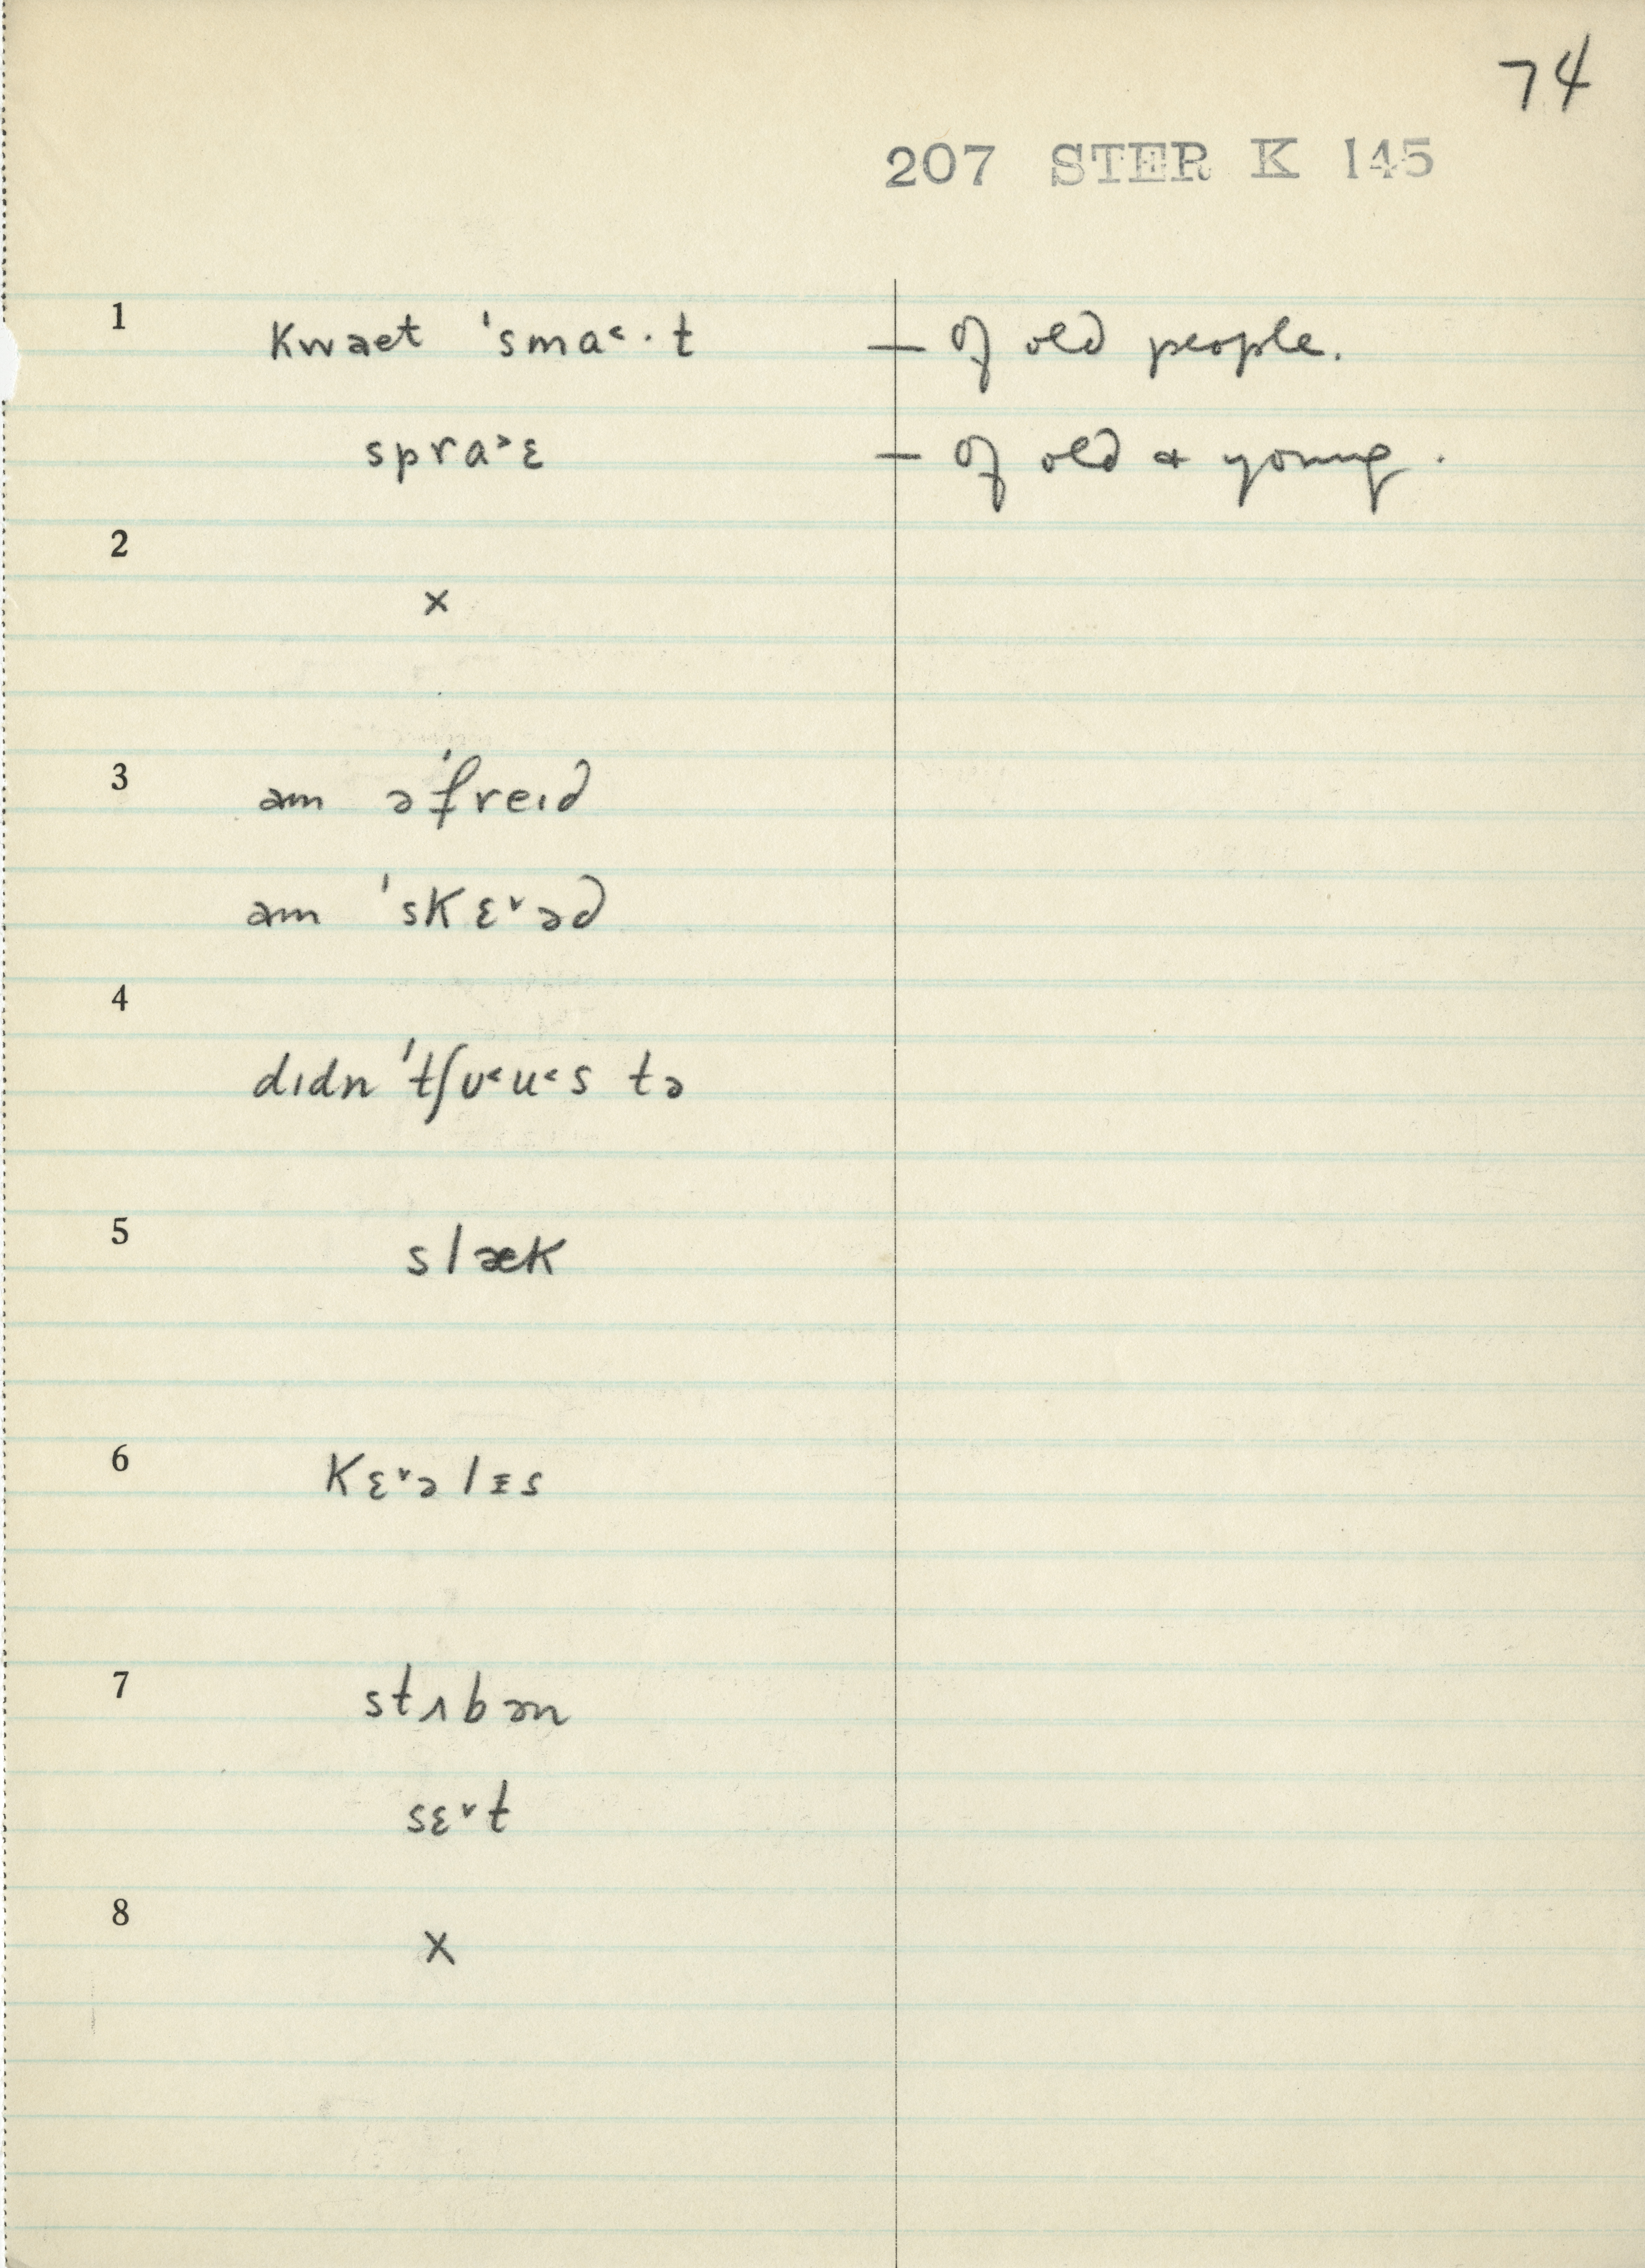 74
207 STER K 145
1 kwaet ˈsma˂·t — of old people.
spra˃ɛ — of old & young.
2
×
3 əm əˈfreɪd
əm ˈskɛ˅əd
4
dɪdn ˈtʃʊ˂u˂s tə
5 slæk
6 kɛ˅əlɪs
7 stʌbən
sɛ˅t
8
×